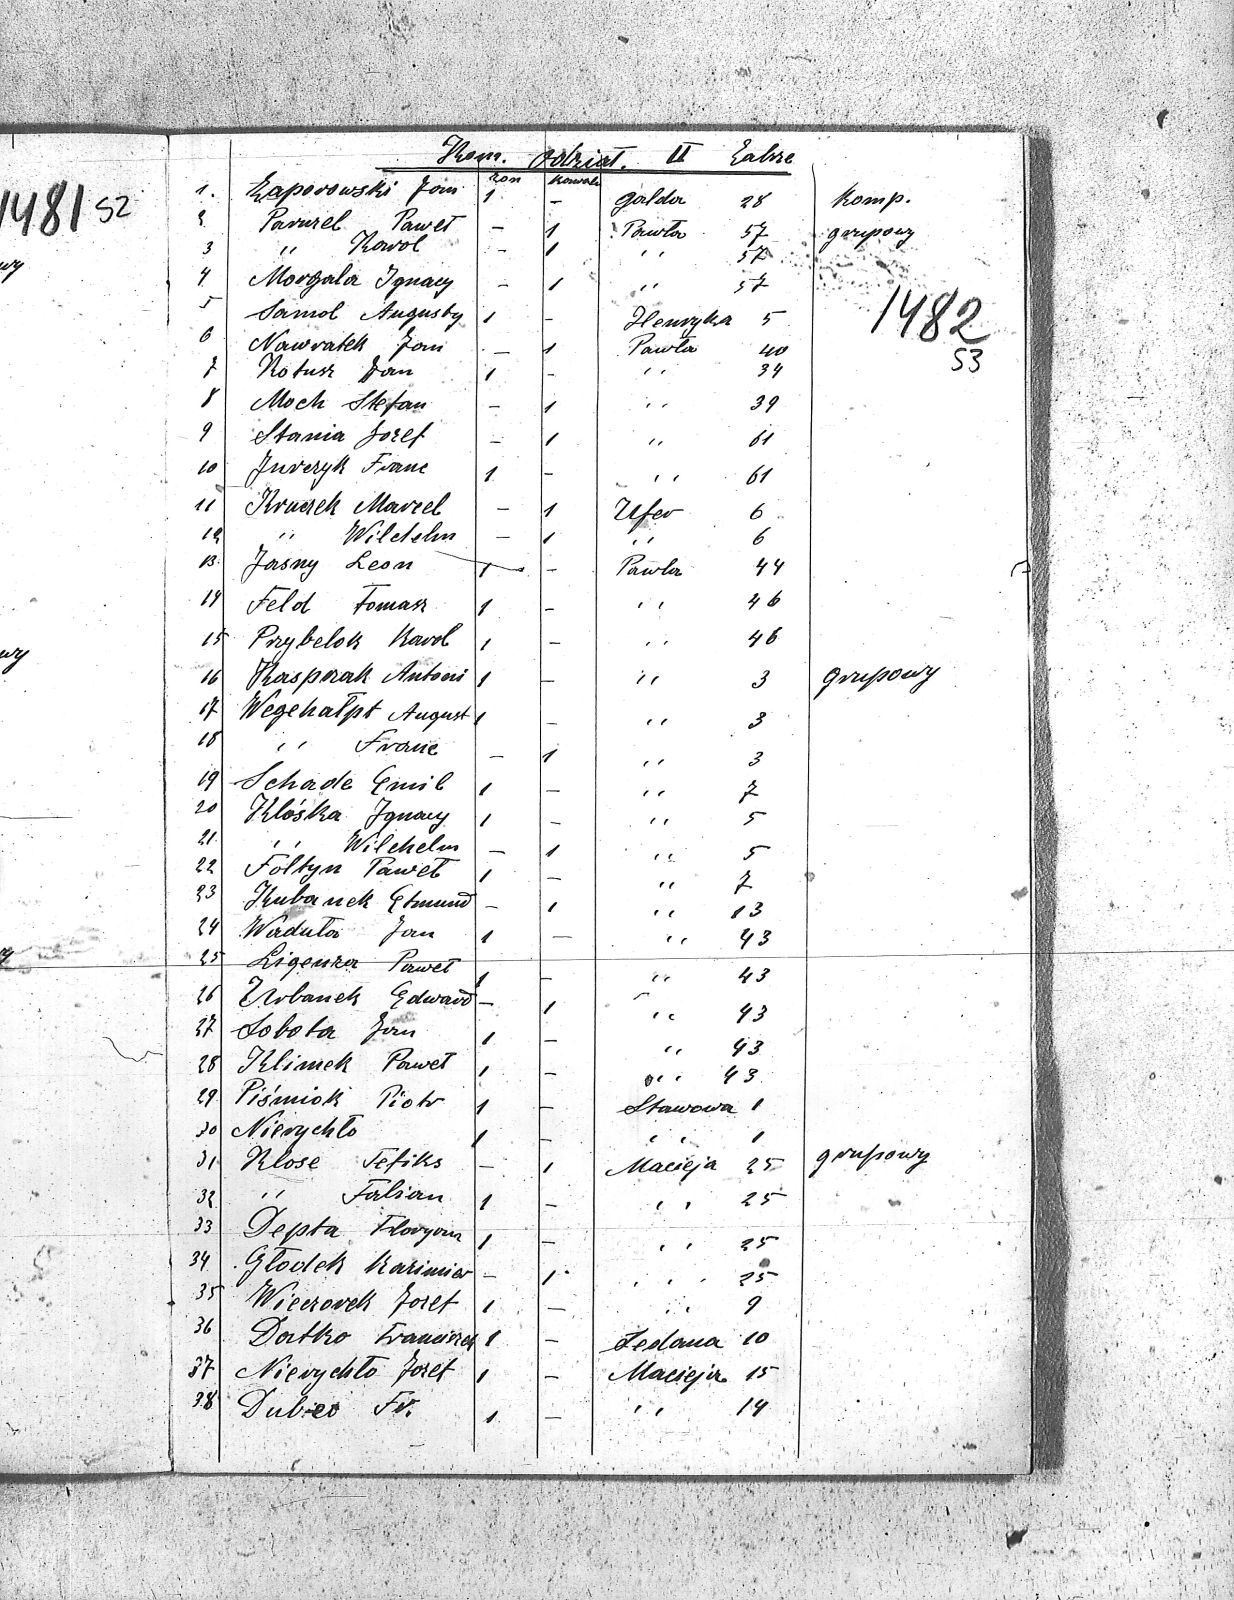 Kom. Odział. II Zabrze
żon kawale
1. Zaporowski Jan 1 – Galda 28 komp.
2 Pawzel Paweł – 1 Pawła 57 grupowy
3 ,, Karol – 1 ,, 57
4 Morgala Ignacy – 1 ,, 57
5 Samol Augusty 1 – Henryka 5
6 Nawratek Jan – 1 Pawła 40
7 Kotusz Jan 1 – ,, 34
8 Moch Stefan – 1 ,, 39
9 Stania Jozef – 1 ,, 61
10 Jurczyk Franc 1 – ,, 61
11 Kruczek Marcel – 1 Ufer 6
12 ,, Wilchelm – 1 ,, 6
13. Jasny Leon 1 – Pawła 44
14 Feld Tomasz 1 – ,, 46
15 Przybelok Karol 1 – ,, 46
16 Kasprzak Antoni 1 – ,, 3 grupowy
17 Wegehałpt August 1 – ,, 3
18 ,, Franc – 1 ,, 3
19 Schade Emil 1 – ,, 7
20 Klóska Ignacy 1 – ,, 5
21. ,, Wilchelm – 1 ,, 5
22 Foltyn Paweł 1 – ,, 7
23 Kubanek Etmund – 1 ,, 13
24 Waduła Jan 1 – ,, 43
25 Ligenza Paweł 1 – ,, 43
26 Urbanek Edward – 1 ,, 43
27 Sobota Jan 1 – ,, 43
28 Klimek Paweł 1 – ,, 43
29 Piśmiok Piotr 1 – Stawowa 1
30 Nierychło 1 – ,, 1
31 Klose Fefiks – 1 Macieja 25 grupowy
32 ,, Fabian 1 – ,, 25
33 Depta Floryan 1 – ,, 25
34 Głodek Kazimier – 1 ,, 25
35 Wieczorek Jozef 1 – ,, 9
36 Datko Franciszek 1 – Sedana 10
37 Nierychło Jozef 1 – Macieja 15
38 Dubiec Fr. 1 – ,, 14
1481 52
1482
53